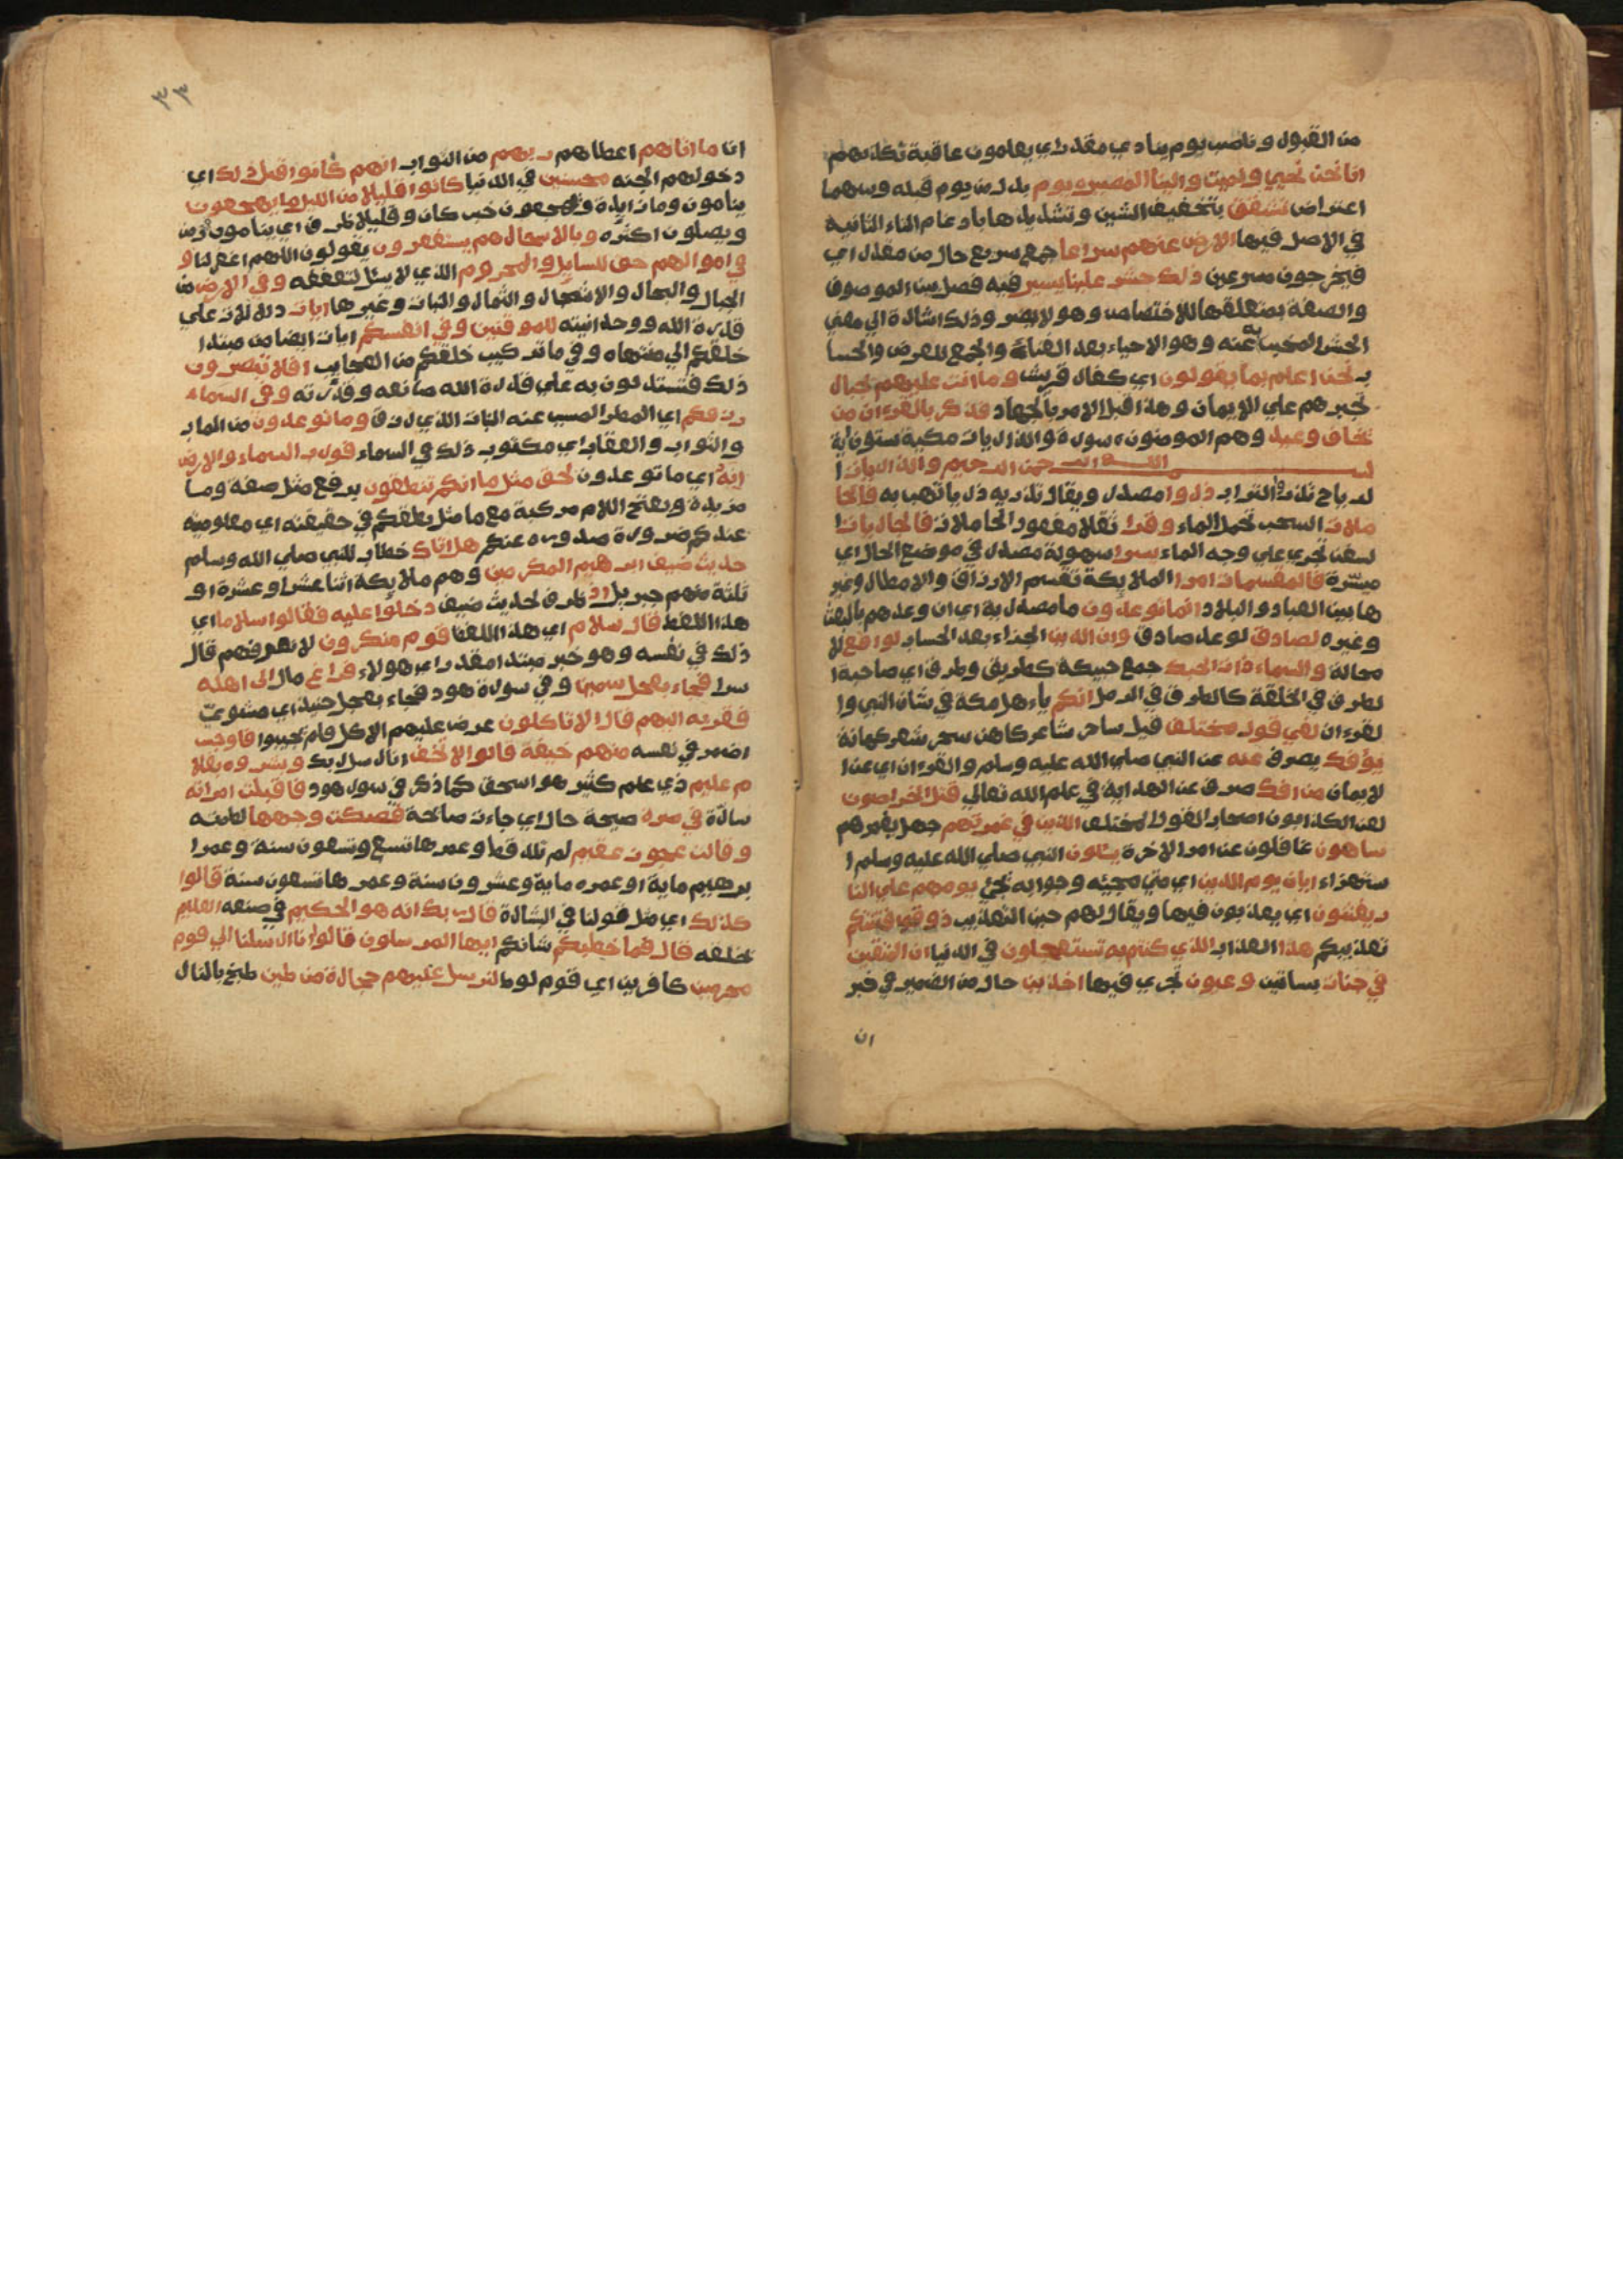 من القبول وناصب يوم ينادي مقدر اي يعلمون عاقبة تكذيبهم
انا نحن نحيي ونميت والينا المصير يوم بدل من يوم قبله وبينهما
اعتراض تشقق بتخفيف الشين وتشديدها بادغام التاء الثانية
في الاصل فيها الارض عنهم سراعا جمع سريع حال من مقدر اي
فيخرجون مسرعين ذلك حشر علينا يسير فيه فصل بين الموصوف
والصفة بمتعلقها للاختصاص وهو لا يضر وذلك اشارة الي معني
الحشر المخبر به عنه وهو الاحياء بعد الفناء والجمع للعرض والحسا
ب نحن اعلم بما يقولون اي كفار قريش وما انت عليهم بجبار
تجبرهم علي الايمان وهذا قبل الامر بالجهاد فذكر بالقرءان من
يخاف وعيد وهم المومنون سورة والذاريات مكية ستون اية
بسم الله الرحمن الرحيم والذاريات ا
لرياح تذروا التراب ذروا مصدر ويقال تذريه ذريا تهب به فالحا
ملات السحب تحمل الماء وقرا ثقلا مفعول الحاملات فالجاريات ا
لسفن تجري علي وجه الماء يسرا بسهولة مصدر في موضع الحال اي
ميسرة فالمقسمات امرا الملايكة تقسم الارزاق والامطار وغير
ها بين العباد والبلاد انما توعدون ما مصدرية اي ان وعدهم بالبعث
وغيره لصادق لوعد صادق وان الدين الجزاء بعد الحساب لواقع لا
محالة والسماء ذات الحبك جمع حبيكة كطريقة وطرق اي صاحبة ا
لطرق في الخلقة كالطرق في الرمل انكم يا اهل مكة في شان النبي وا
لقرءان لفي قول مختلف قيل ساحر شاعر كاهن سحر شعر كهانة
يؤفك يصرف عنه عن النبي صلي الله عليه وسلم والقرءان اي عن ا
لايمان من افك صرف عن الهداية في علم الله تعالي قتل الخراصون
لعن الكذابون اصحاب القول المختلف الذين في غمرتهم جهل يغمرهم
ساهون غافلون عن امر الاخرة يسئلون النبي صلي الله عليه وسلم ا
ستهزاء ايان يوم الدين اي متي مجيئه وجوابه تجئ يومهم علي النا
ر يفتنون اي يعذبون فيها ويقال لهم حين التعذيب ذوقوا فتنتكم
تعذيبكم هذا العذاب الذي كنتم به تستعجلون في الدنيا ان المتقين
في جنات بساتين وعيون تجري فيها اخذين حال من الضمير في خبر
ان
٣٣
انا ما اتاهم اعطاهم ربهم من الثواب انهم كانوا قبل ذلك اي
دخولهم الجنه محسنين في الدنيا كانوا قليلا من الليل ما يهجعون
ينامون وما زايدة ويهجعون خبر كان وقليلا ظرف اي ينامون زمن
ويصلون اكثره وبالاسحار هم يستغفرون يقولون اللهم اغفر لنا و
في اموالهم حق للسايل والمحروم الذي لا يسئل لتعففه وفي الارض من
الجبال والبحار والاشجار والثمار والنبات وغيرها ايات دلالات علي
قدرة الله ووحدانيته للموقنين وفي انفسكم ايات ايضا من مبتدا
خلقكم الي منتهاه وفي ما تركيب خلقكم من العجايب افلا تبصرون
ذلك فتستدلون به علي قدرة الله صانعه وقدرته وفي السماء
رزقكم اي المطر المسبب عنه النبات الذي رزق وما توعدون من الماب
والثواب والعقاب اي مكتوب ذلك في السماء فورب السماء والارض
انه اي ما توعدون لحق مثل ما انكم تنطقون برفع مثل صفة وما
مزيدة وبفتح اللام مركبة مع ما مثل نطقكم في حقيقته اي معلوميته
عندكم ضرورة صدوره عنكم هل اتاك خطاب للنبي صلي الله وسلم
حديث ضيف ابرهيم المكرمين وهم ملايكة اثنا عشر او عشرة او
ثلثة منهم جبريل اذ ظرف لحديث ضيف دخلوا عليه فقالوا سلاما اي
هذا اللفظ قال سلام اي هذا اللفظ قوم منكرون لا نعرفهم قال
ذلك في نفسه وهو خبر مبتدا مقدر اي هولاء فراغ مال الى اهله
سرا فجاء بعجل سمين وفي سورة هود فجاء بعجل حنيذ اي مشويّ
فقربه اليهم قال الا تاكلون عرض عليهم الاكل فلم يجيبوا فاوجس
اضمر في نفسه منهم خيفة قالوا لا تخف انا رسل ربك وبشروه بغلا
م عليم ذي علم كثير هو اسحق كما ذكر في سورة هود فاقبلت امراته
سارّة في صرة صيحة حال اي جاءت صائحة فصكت وجهها لطمته
وقالت عجوز عقيم لم تلد قط وعمرها تسع وتسعون سنة وعمر ا
برهيم ماية او عمره ماية وعشرون سنة وعمرها تسعون سنة قالوا
كذلك اي مثل قولنا في البشارة قال ربك انه هو الحكيم في صنعه العليم
بخلقه قال فما خطبكم شانكم ايها المرسلون قالوا انا ارسلنا الي قوم
مجرمين كافرين اي قوم لوط لنرسل عليهم حجارة من طين طبخ بالنار